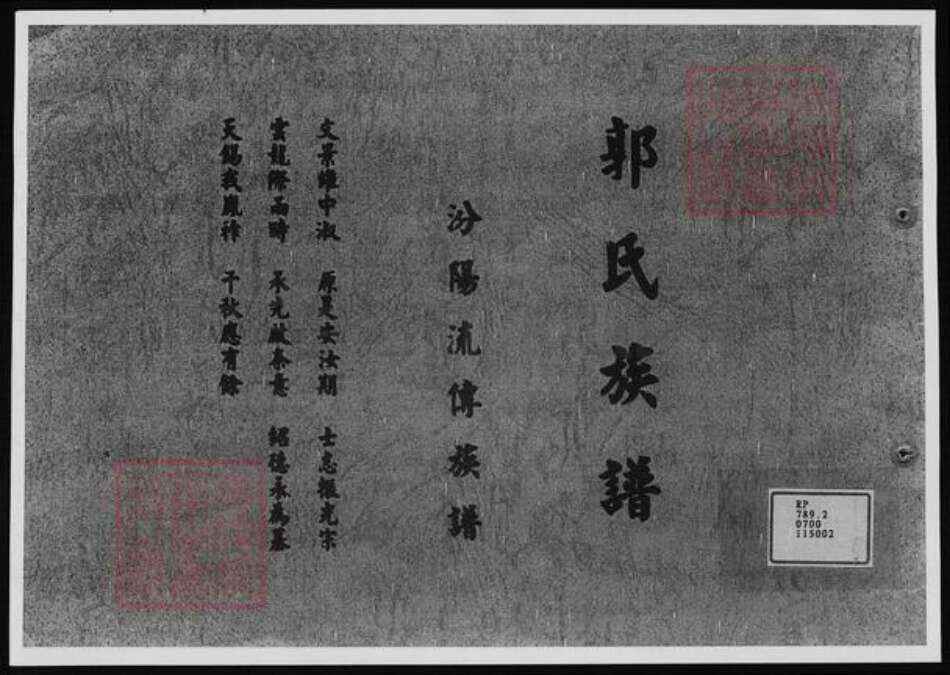 郭氏族譜
汾陽流傳族譜
文景維中淑 原是安汝期 士志振光宗
雲龍際雨時 承先啟奈意 紹德承為基
天錫我胤祚 千秋應有餘
RP
789.2
0700
115002